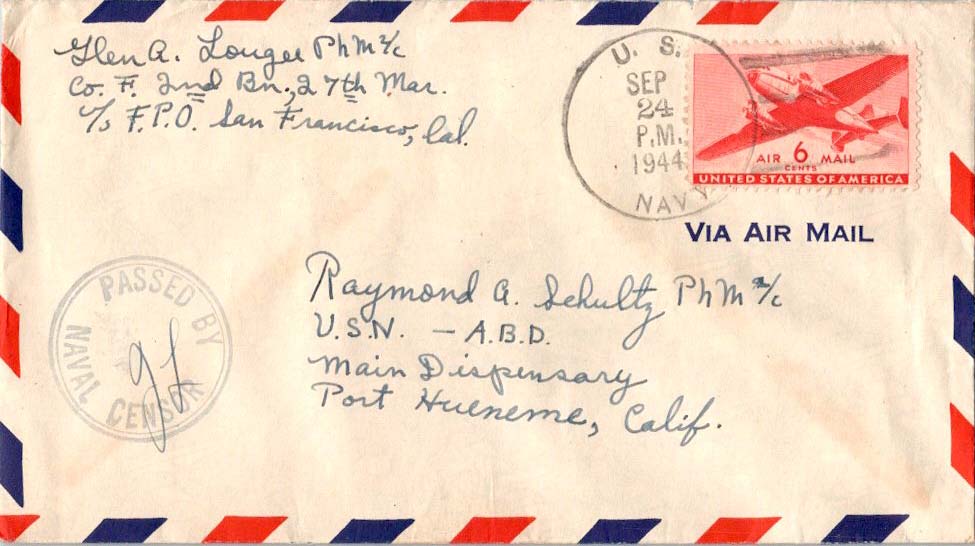 Glen A. Lougee PhM 2/c
Co. F. 2nd Bn., 27th Mar.
℅ F.P.O. San Francisco, Cal.
U. S.
SEP
24
P.M.
1944
NAVY
AIR 6 MAIL
CENTS
UNITED STATES OF AMERICA
VIA AIR MAIL
PASSED BY
NAVAL CENSOR
Raymond A. Schultz PhM 2/c
U.S.N. — A.B.D.
Main Dispensary
Port Hueneme, Calif.